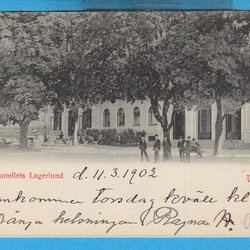 otellets Lagerlund
d. 11.3.1902
ankommer Torsdag kväll kl
många helsningar Ragnar